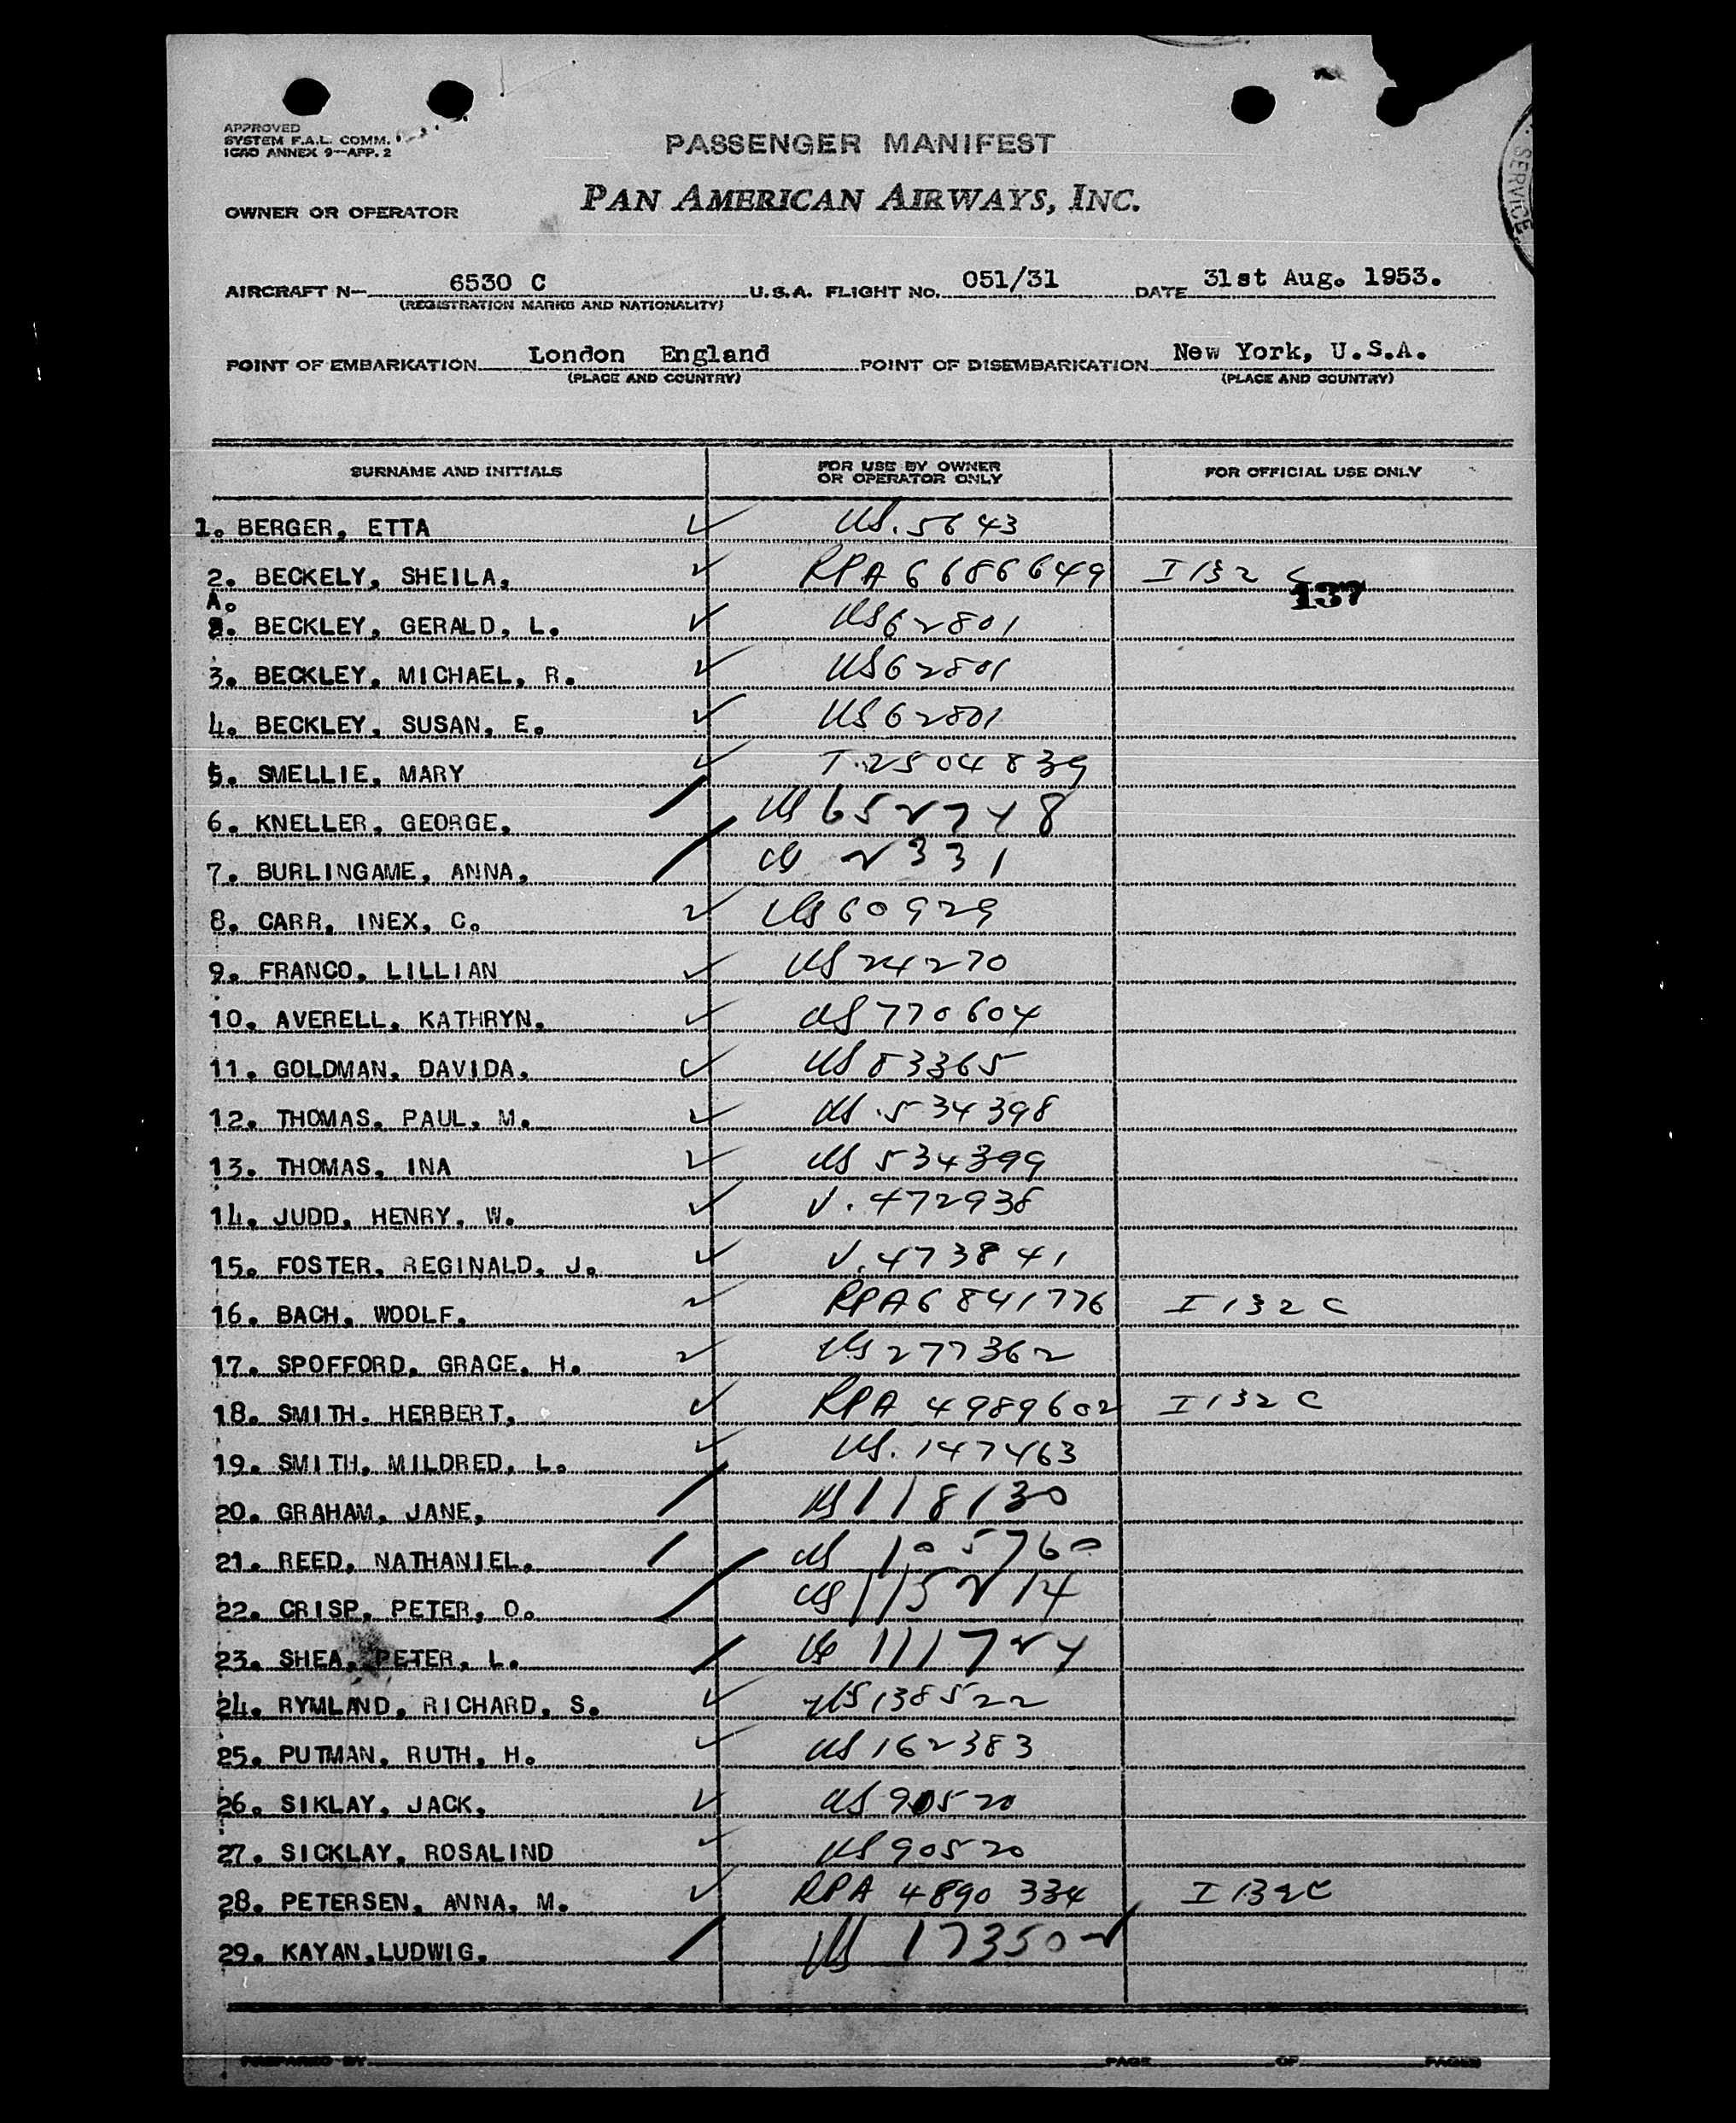 APPROVED
SYSTEM F.A.L. COMM.
ICAO ANNEX 9—APP. 2
PASSENGER MANIFEST
OWNER OR OPERATOR PAN AMERICAN AIRWAYS, INC.
SERVICE
AIRCRAFT N— 6530 C U.S.A. FLIGHT NO. 051/31 DATE 31st Aug. 1953.
(REGISTRATION MARKS AND NATIONALITY)
POINT OF EMBARKATION London England POINT OF DISEMBARKATION New York, U.S.A.
(PLACE AND COUNTRY) (PLACE AND COUNTRY)
SURNAME AND INITIALS FOR USE BY OWNER OR OPERATOR ONLY FOR OFFICIAL USE ONLY
1. BERGER, ETTA ✓ US. 5643
2. BECKELY, SHEILA, ✓ RPA 6686649 I 132 C
137
A.
2. BECKLEY, GERALD, L. ✓ US 62801
3. BECKLEY, MICHAEL, R. ✓ US 62801
4. BECKLEY, SUSAN, E. ✓ US 62801
5. SMELLIE, MARY ✓ T. 2504839
6. KNELLER, GEORGE, / US 652748
7. BURLINGAME, ANNA, / US 2331
8. CARR, INEX, C. ✓ US 60929
9. FRANCO, LILLIAN ✓ US 24270
10. AVERELL, KATHRYN. ✓ US 770604
11. GOLDMAN, DAVIDA, ✓ US 83365
12. THOMAS, PAUL, M. ✓ US. 534398
13. THOMAS, INA ✓ US 534399
14. JUDD, HENRY, W. ✓ V. 472938
15. FOSTER, REGINALD, J. ✓ V. 473841
16. BACH, WOOLF. ✓ RPA 6841776 I 132 C
17. SPOFFORD, GRACE, H. ✓ US 277362
18. SMITH. HERBERT, ✓ RPA 4989602 I 132 C
19. SMITH, MILDRED, L. ✓ US. 147463
20. GRAHAM, JANE, / US 118130
21. REED, NATHANIEL, / US 105760
22. CRISP, PETER, O. / US 115214
23. SHEA, PETER, L. / US 111724
24. RYMLAND, RICHARD, S. ✓ US 138522
25. PUTMAN, RUTH, H. ✓ US 162383
26. SIKLAY, JACK, ✓ US 90520
27. SICKLAY, ROSALIND ✓ US 90520
28. PETERSEN, ANNA, M. ✓ RPA 4890334 I 132 C
29. KAYAN, LUDWIG, / US 173502
PREPARED BY PAGE OF PAGES